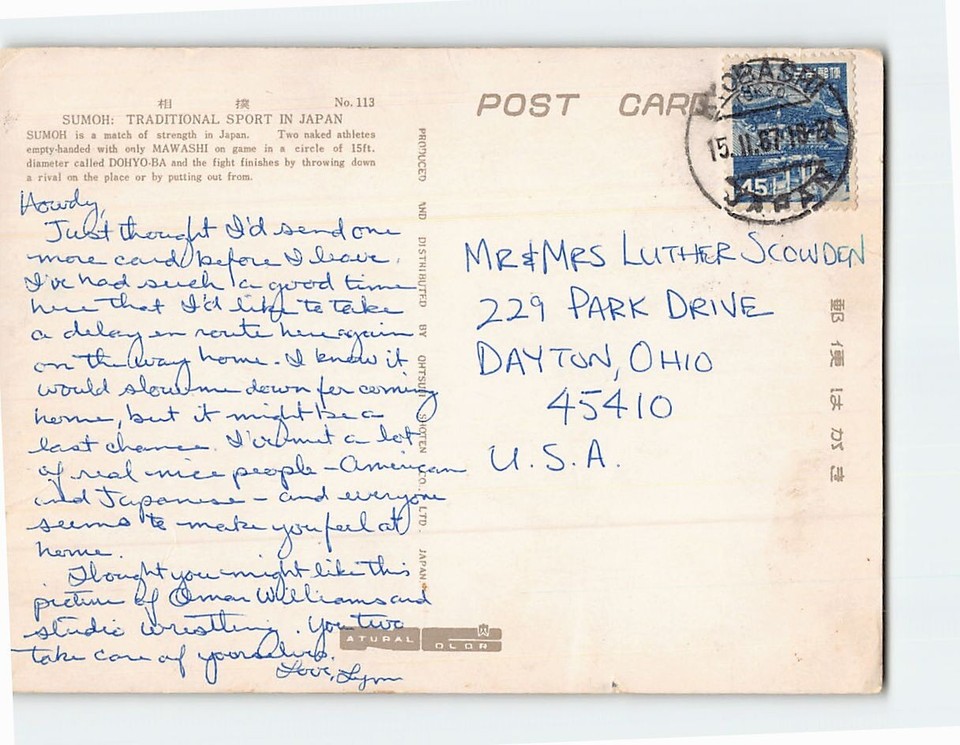 相 撲 No. 113
SUMOH: TRADITIONAL SPORT IN JAPAN
SUMOH is a match of strength in Japan. Two naked athletes
empty-handed with only MAWASHI on game in a circle of 15ft.
diameter called DOHYO-BA and the fight finishes by throwing down
a rival on the place or by putting out from.
Howdy,
Just thought I'd send one
more card before I leave.
I've had such a good time
here that I'd like to take
a delay en route here again
on the way home. I know it
would slow me down for coming
home, but it might be a
last chance. I've met a lot
of real nice people - American
and Japanese - and everyone
seems to make you feel at
home.
Thought you might like this
picture of Omar Williams and
studio wrestling. You two
take care of yourselves.
Love, Lynn
PRODUCED AND DISTRIBUTED BY OHTSUKI SHOTEN CO., LTD. JAPAN
ATURAL OLOR
POST CARD
OBASHI
TOKYO
15.II.67 18-24
JAPAN
45
MR & MRS LUTHER SCOWDEN
229 PARK DRIVE
DAYTON, OHIO
45410
U.S.A.
郵便はがき